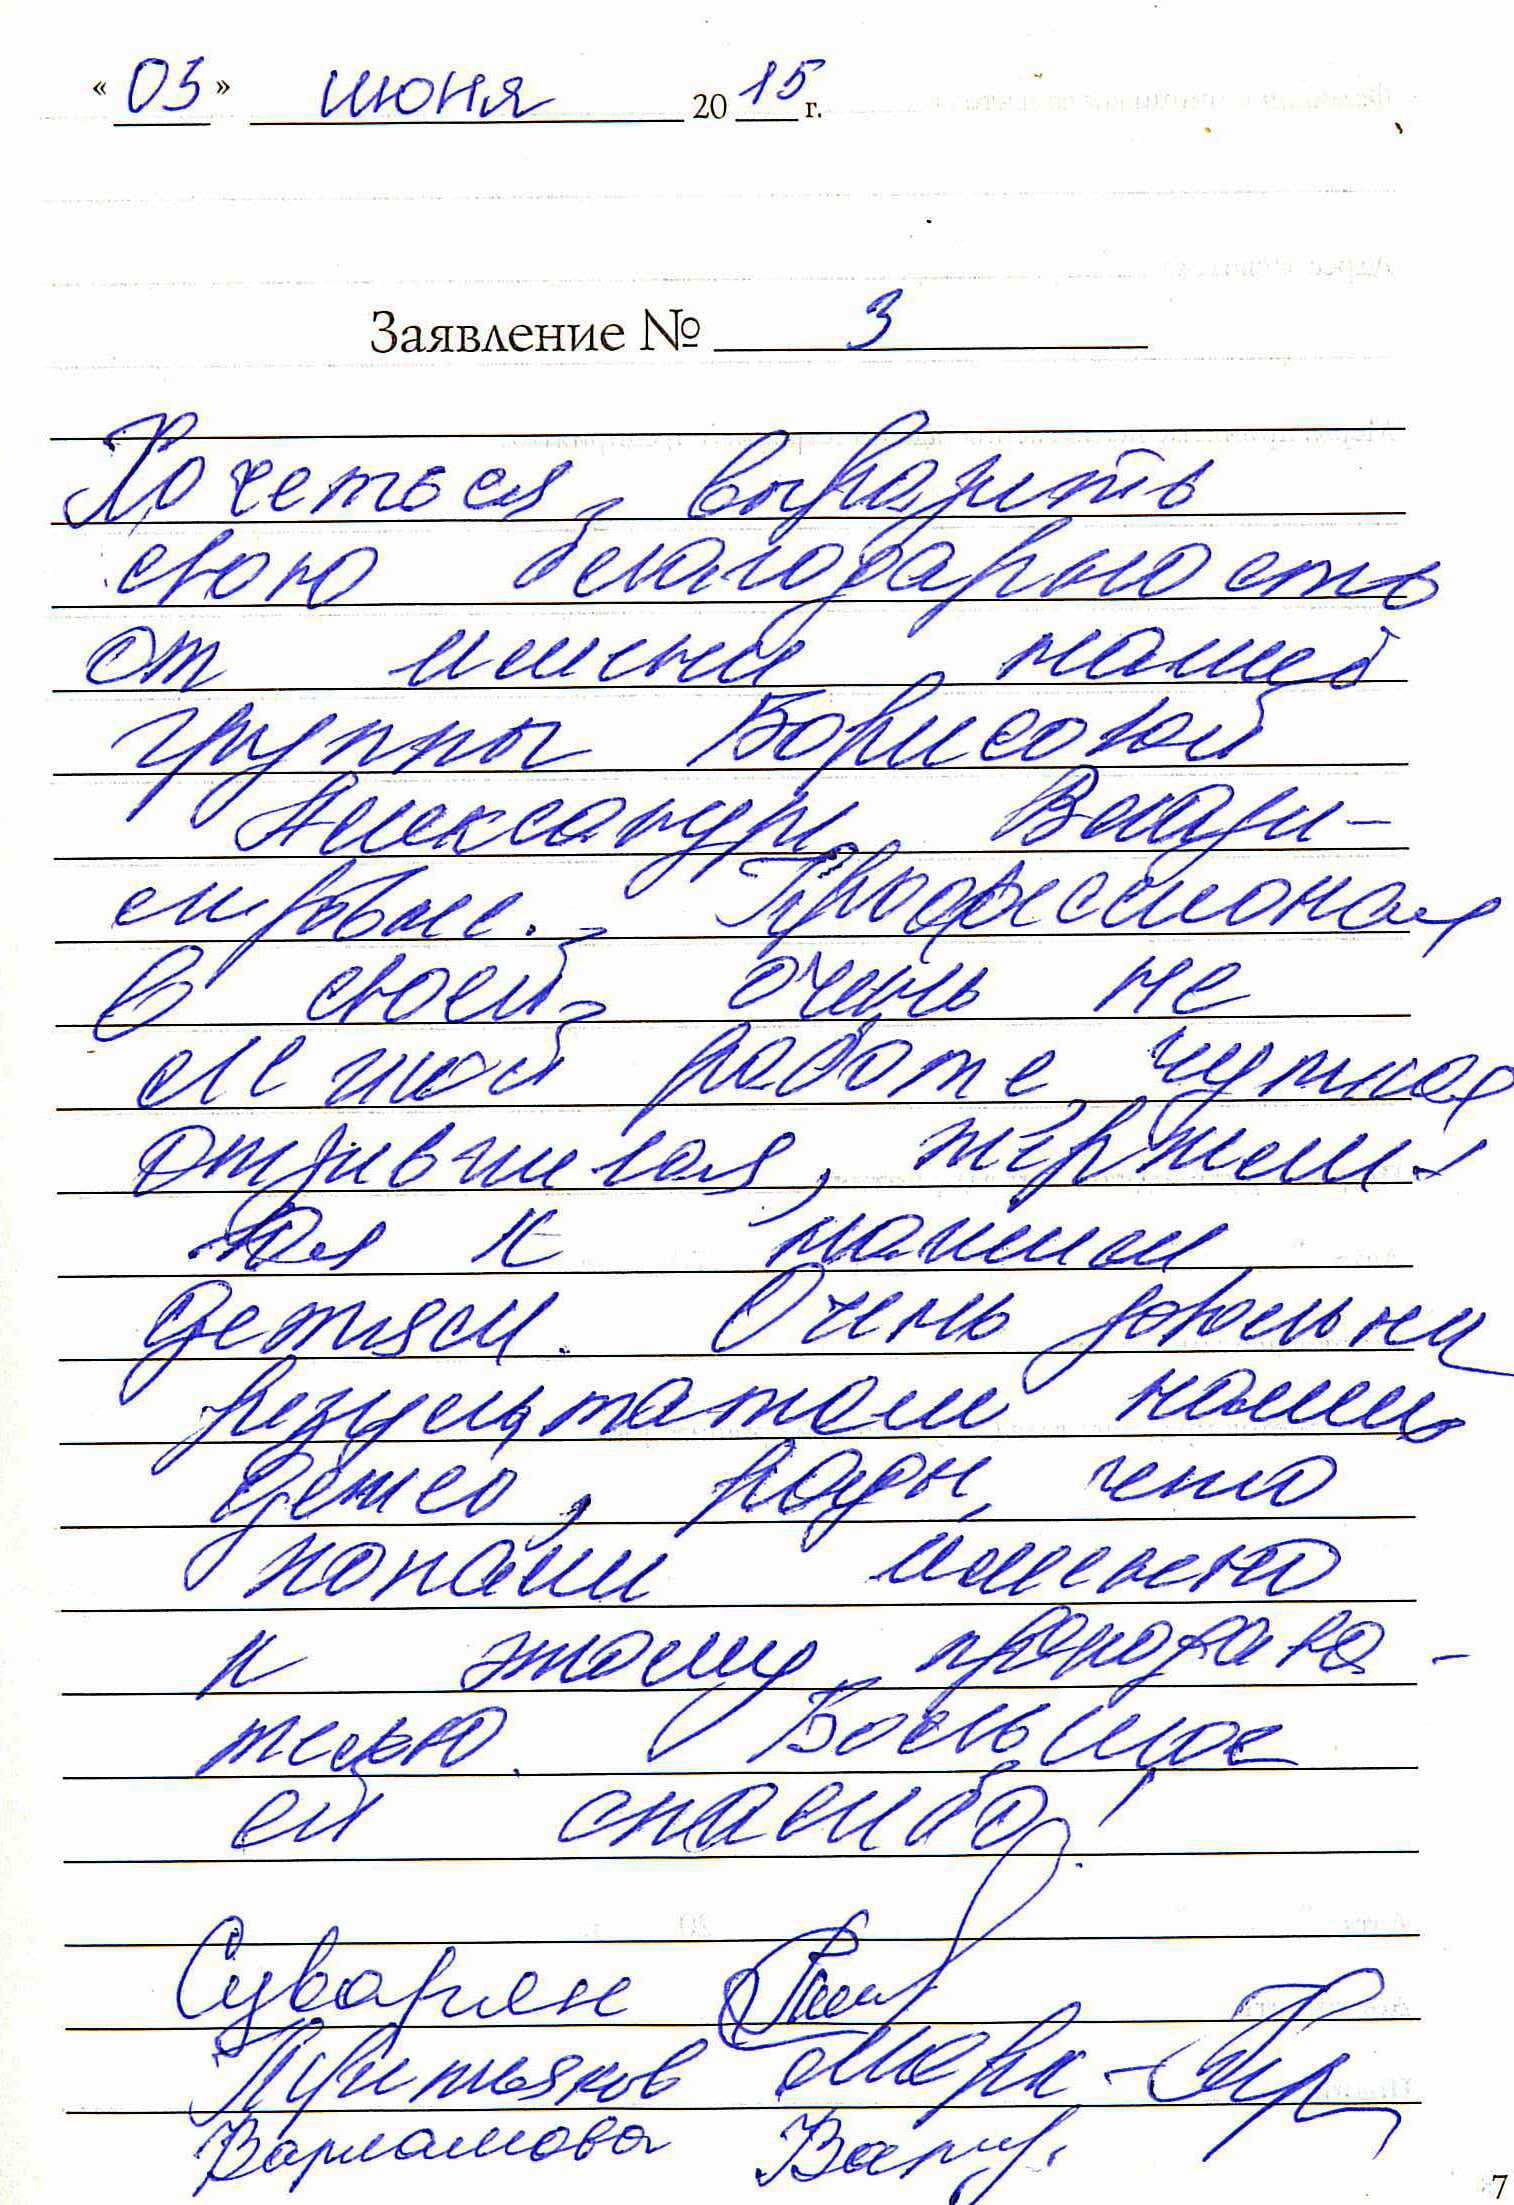 « 03 » июня 2015 г.
Заявление № 3
Хочеться выразить
свою благодарность
от имени нашей
группы Борисовой
Александры Влади-
мировне. Профессионал
в своей очень не
легкой работе, чуткая
отзывчилая, терпели-
вая к нашим
детям. Очень довольны
результатом наших
детей, рады, что
попали именно
к этому преподава-
телю. Большое
ей спасибо!
Суварян
Третьяков Марк -
Варламова Варл.
7